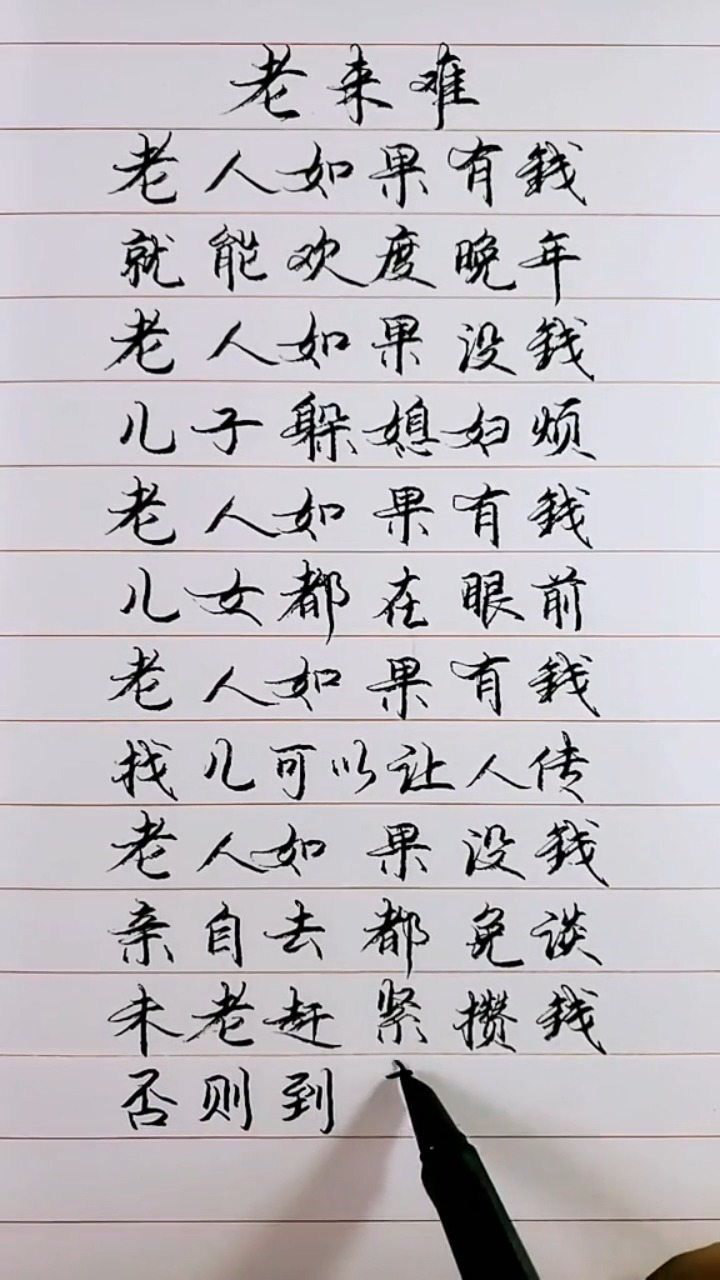 老来难
老人如果有錢
就能欢度晚年
老人如果没錢
儿子躲媳妇烦
老人如果有錢
儿女都在眼前
老人如果有錢
找儿可以让人传
老人如果没錢
亲自去都免谈
未老赶紧攒錢
否则到